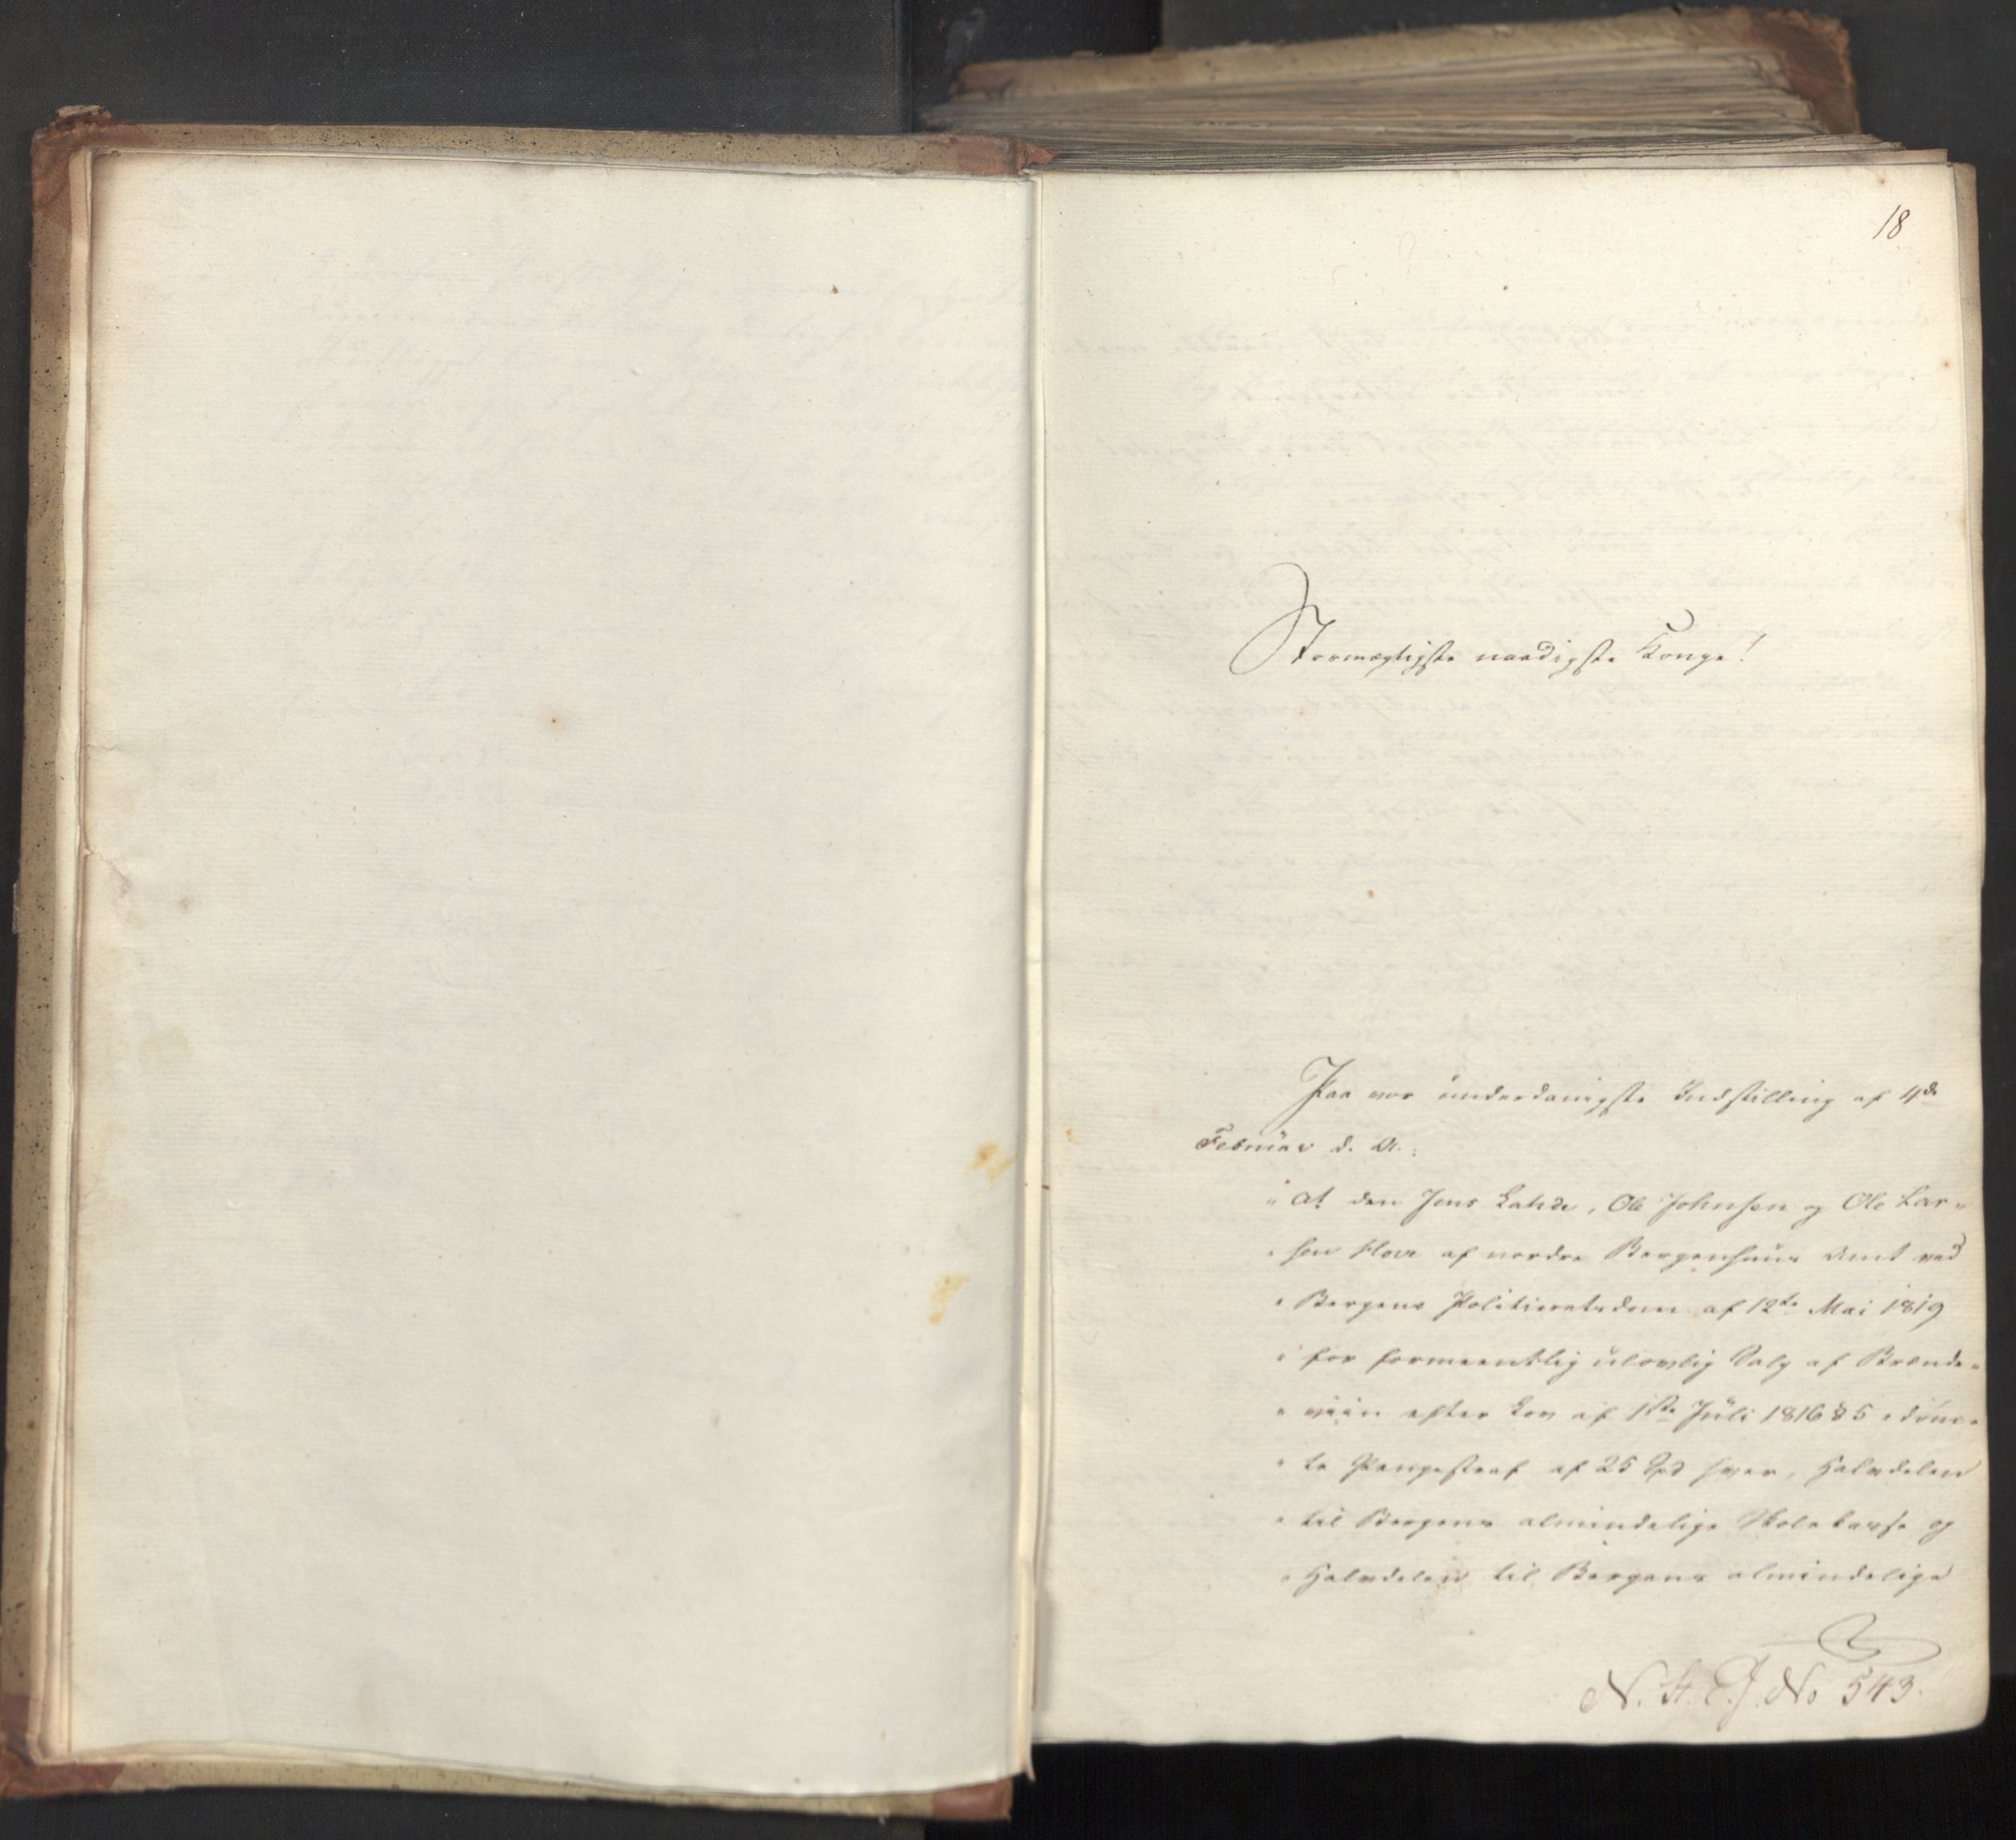 18
Stormægtigste naadigste Konge!
Paa vor underdanigste Indstilling af 4de
Februar d. A.:
"at den Jens Lahde, Ole Johnsen og Ole Lar-
"sen Hove af nordre Bergenhuus Amt ved
"Bergens Politieretsdom af 12te Mai 1819
"for formeentlig ulovlig Salg af Brænde-
"viin efter Lov af 1ste Juli 1816 § 5 idøm-
"te Pengestraf af 25 Spd hver, Halvdelen
"til Bergens almindelige Skolekasse og
"Halvdelen til Bergens almindelige
N. St. E. J. No 543.